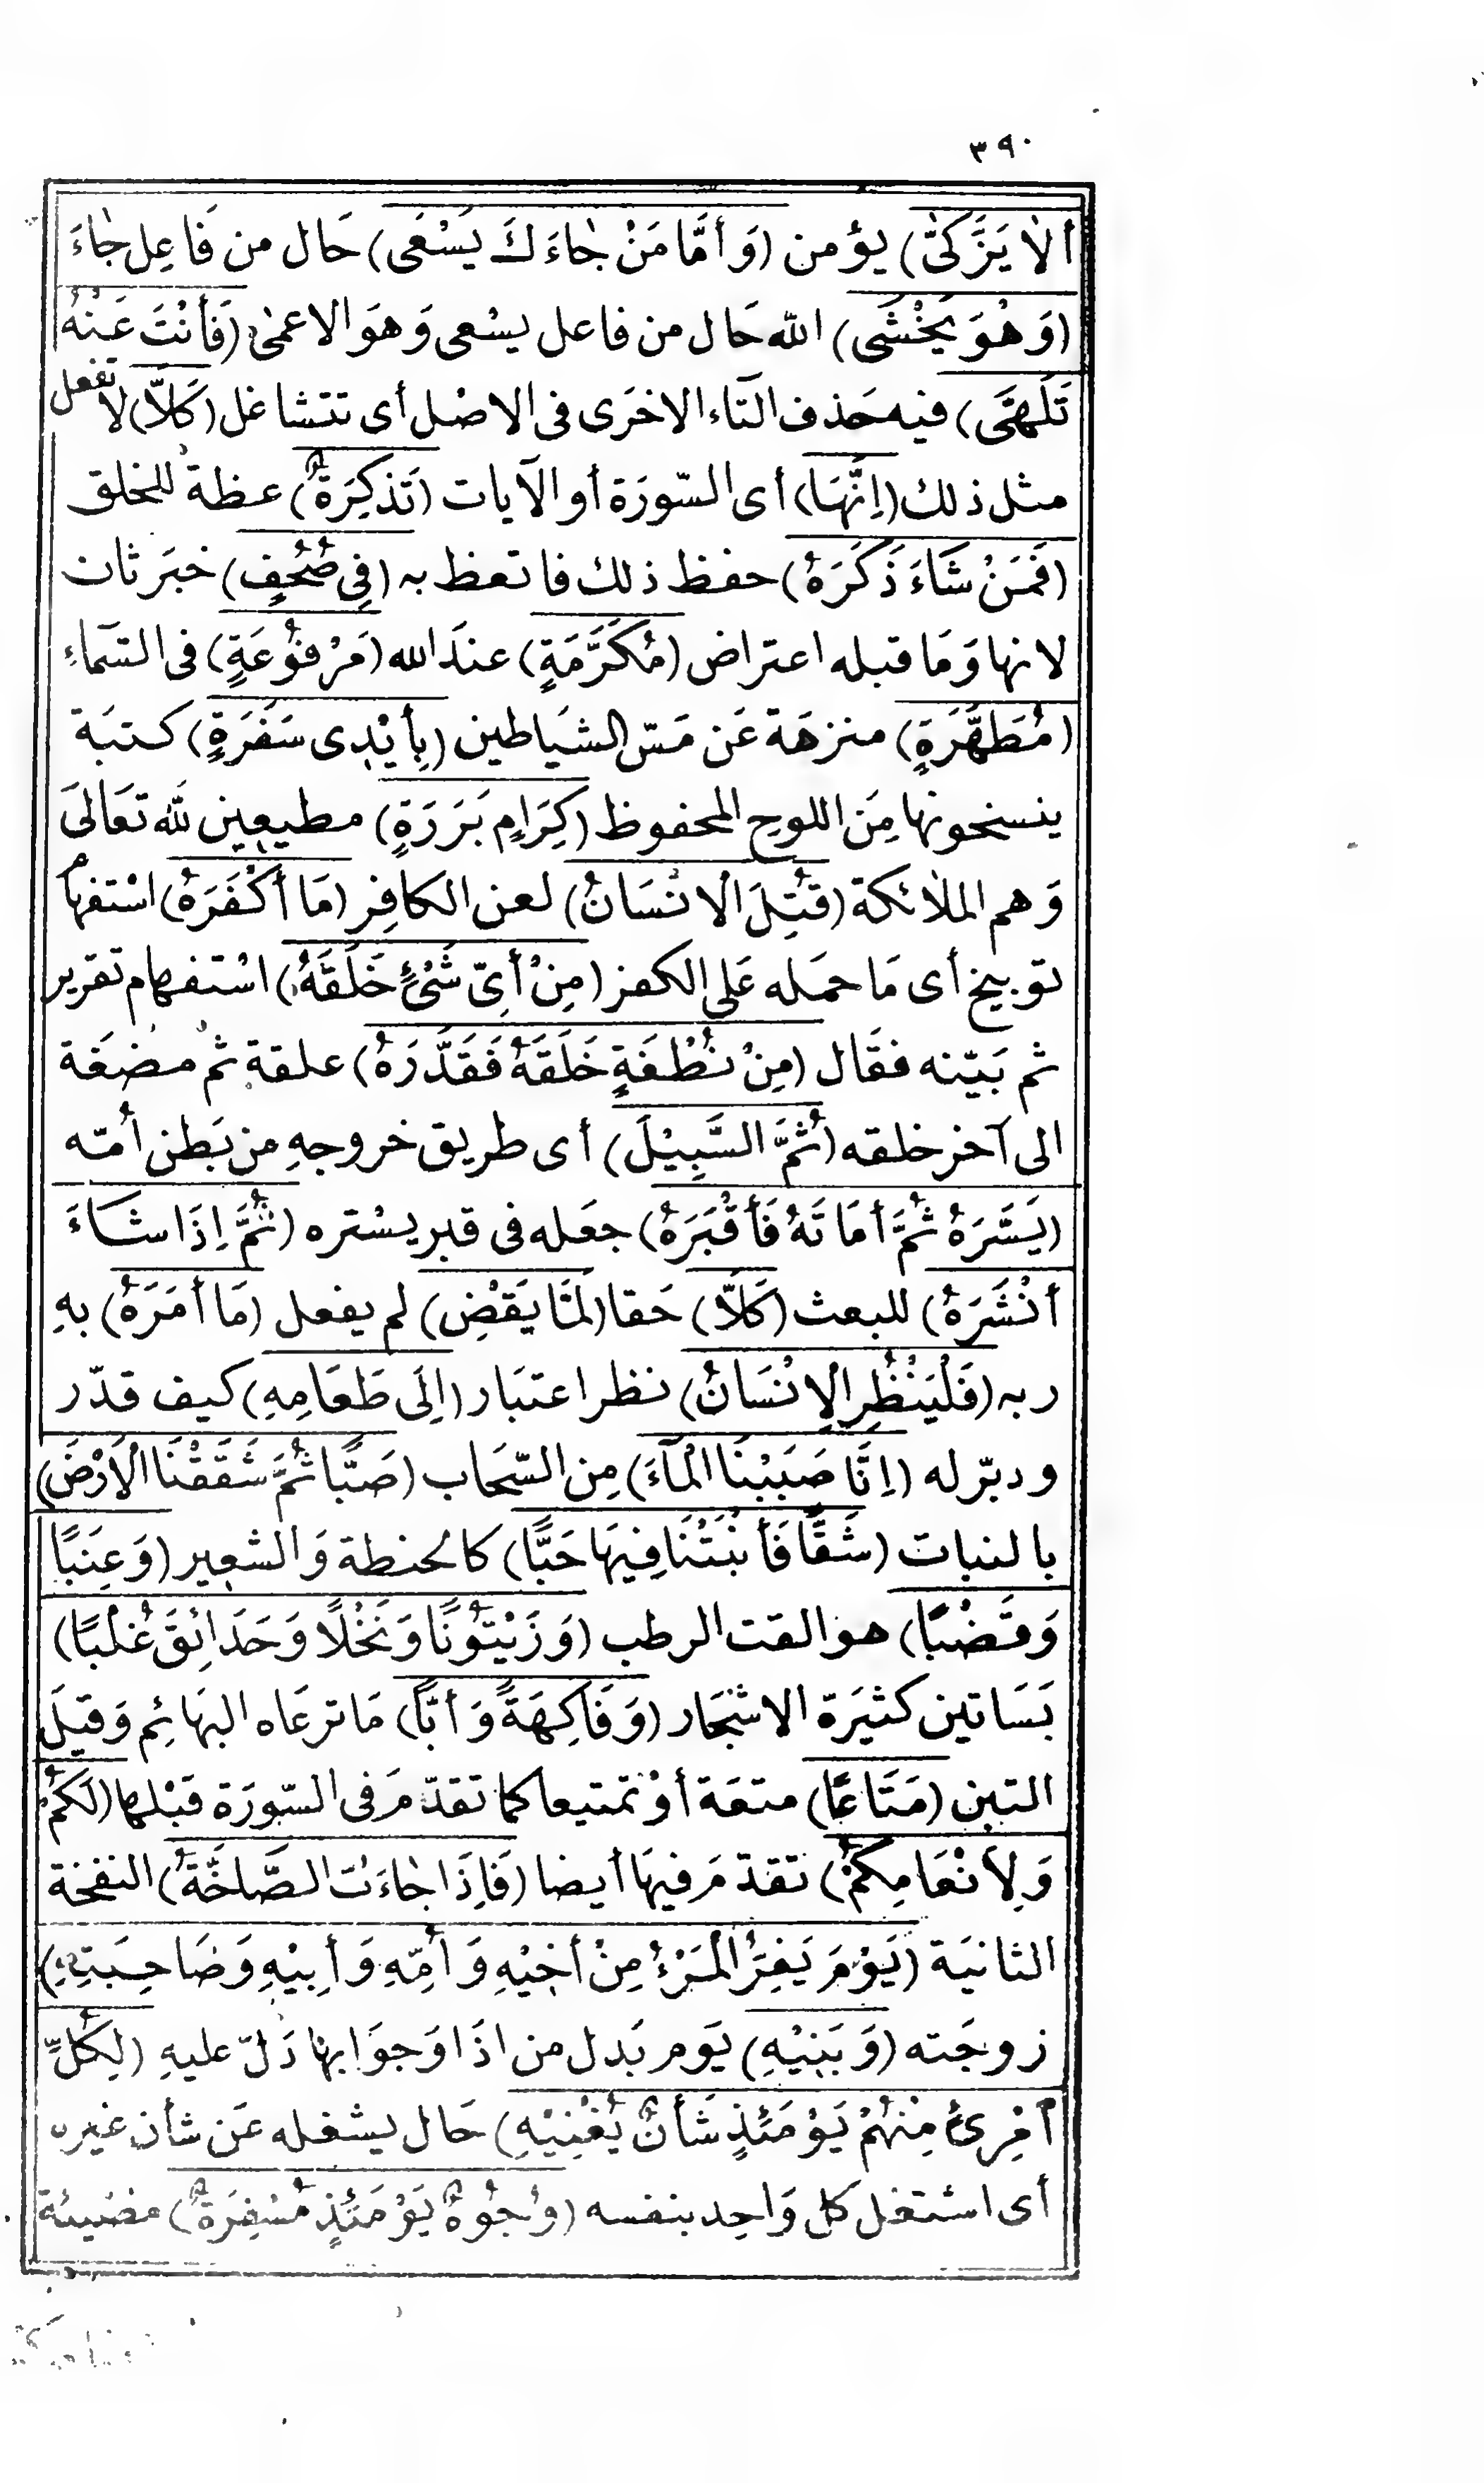 ٣٩٠
ألَا يَزَّكّىٰ) يؤمن (وَأمَّا مَنْ جَاءَكَ يَسْعَى) حَال من فَاعِل جَاءَ
(وَهُوَ يَخْشَى) الله حَال من فاعل يسْعى وَهوَ الاعمىٰ (فَأنْتَ عَنْهُ
تَلَهَّى) فيه حَذف التَاء الاخرَى فى الاصْل أى تتشاغل (كَلَّا) لا تفعل
مثل ذلك (اِنَّهَا) أى السّورَة أو الآيات (تَذكِرَةٌ) عظة للخلق
(فَمَنْ شَاءَ ذَكَرَهُ) حفظ ذلك فاتعظ به (فِى صُحُفٍ) خبَر ثان
لانها وَمَا قبله اعتراض (مُكَرَّمَةٍ) عندَ الله (مَرْفُوعَةٍ) فى السَّمَاءِ
(مُطَهَّرَةٍ) منزهَة عَن مَسّ الشيَاطين (بِأيْدِى سَفَرَةٍ) كتبَة
ينسخونها مِنَ اللوحِ المحفوظ (كِرَامٍ بَرَرَةٍ) مطيعِين لله تعَالىَ
وَهم الملائكة (قُتِلَ الْانْسَانُ) لعن الكافِر (مَا أكْفَرَهُ) اسْتفهام
توبيخ أى مَا حمَله عَلى الكفر (مِنْ أىِّ شَىْءٍ خَلَقَهُ) اسْتفهام تقرير
ثم بَيّنه فقَال (مِنْ نُطْفَةٍ خَلَقَهُ فَقَدَّرَهُ) علقة ثم مضغَة
الى آخر خلقه (ثُمَّ السَّبِيْلَ) أى طريق خروجهِ من بَطن أمّه
(يَسَّرَهُ ثُمَّ أمَاتَهُ فَأقْبَرَهُ) جعَله فى قبر يسْتره (ثُمَّ اِذَا شَاءَ
أنْشَرَهُ) للبعث (كَلَّا) حَقا (لَمَّا يَقضِ) لم يفعل (مَا أمَرَهُ) بهِ
ربه (فَلْيَنْظُرِ الْاِنْسَانُ) نظر اعتبَار (اِلَى طَعَامِهِ) كيف قدّر
ودبّر له (اِنَّا صَبَبْنَا الْمَآءَ) مِن السّحَاب (صَبًّا ثُمَّ شَقَقْنَا الْاَرْضَ)
بالنبات (شَقًّا فَأنْبَتْنَا فِيهَا حَبًّا) كالحنطة وَالشعِير (وَعِنَبًا
وَقَضْبًا) هو القت الرطب (وَزَيْتُونًا وَنَخْلًا وَحَدَائِقَ غُلْبًا)
بَسَاتين كثيَرة الاشْجَار (وَفَاكِهَةً وَأبًّا) مَا ترعَاه البهَائِم وَقيلَ
التبن (مَتَاعًا) متعَة أوْ تمتيعا كما تقدّمَ فى السّورَة قبْلها (لَكُمْ
وَلِأنْعَامِكُمْ) تقدّمَ فيهَا أيضا (فَاِذَا جَاءَتْ الصَّاخَّةُ) النفخة
الثانيَة (يَوْمَ يَفِرُّ الْمَرْءُ مِنْ أخِيْهِ وَأمِّهِ وَأبِيْهِ وَصَاحِبَتِهِ)
زوجَته (وَبَنِيْهِ) يَوم بَدل من اذَا وَجوَابها دَلّ عليهِ (لِكُلِّ
أمْرِئٍ مِنْهُمْ يَوْمَئذٍ شَأنٌ يُغْنِيْهِ) حَال يشغله عَن شأن غيره
أى اشتغل كل وَاحِد بنفسه (وُجُوهٌ يَوْمَئذٍ مُسْفِرَةٌ) مضيئة